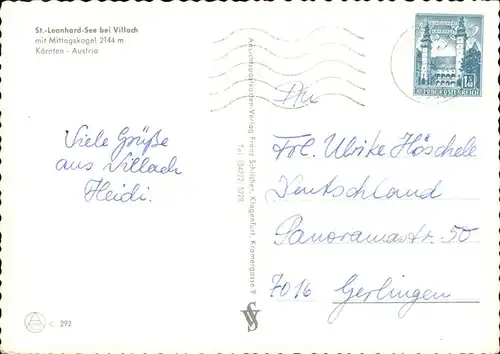 St.-Leonhard-See bei Villach
mit Mittagskogel 2144 m
Kärnten - Austria
Viele Grüße
aus Villach
Heidi.
C. 292
Ansichtspostkarten-Verlag Franz Schilcher, Klagenfurt, Kramergasse 9
Tel. (04222) 5928
REPUBLIK ÖSTERREICH
An
Frl. Ulrike Höschele
Deutschland
Panoramastr. 50
7016 Gerlingen